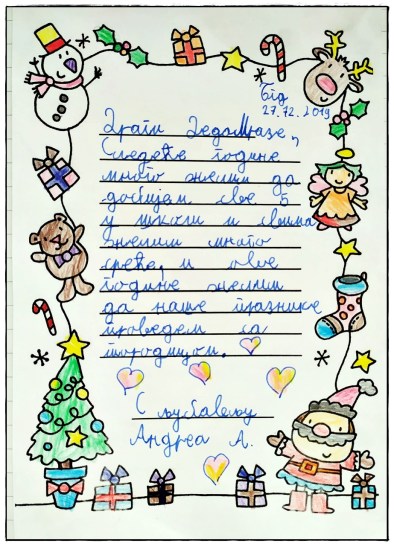 Бгд
27.12.2019
Драги Дедо Мразе,
Следеће године
много желим да
добијем све 5
у школи и свима
желим много
среће, и ове
године желим
да наше празнике
проведем са
породицом.
С љубављу
Андреа А.